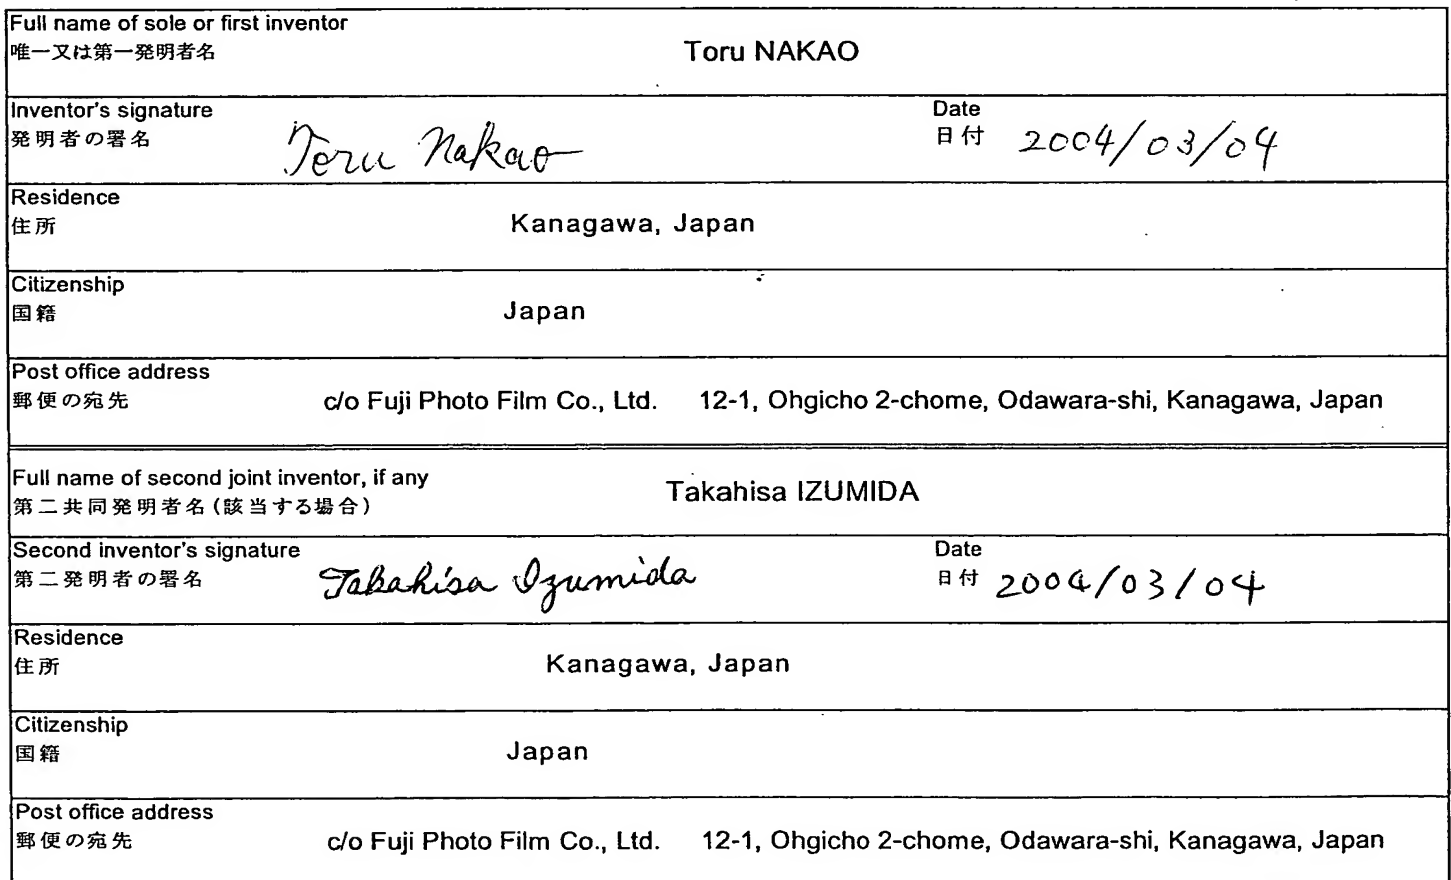 Full name of sole or first inventor
唯一又は第一発明者名
Toru NAKAO
Inventor's signature
発明者の署名
Toru Nakao
Date
日付 2004/03/04
Residence
住所
Kanagawa, Japan
Citizenship
国籍
Japan
Post office address
郵便の宛先
c/o Fuji Photo Film Co., Ltd. 12-1, Ohgicho 2-chome, Odawara-shi, Kanagawa, Japan
Full name of second joint inventor, if any
第二共同発明者名(該当する場合)
Takahisa IZUMIDA
Second inventor's signature
第二発明者の署名
Takahisa Izumida
Date
日付 2004/03/04
Residence
住所
Kanagawa, Japan
Citizenship
国籍
Japan
Post office address
郵便の宛先
c/o Fuji Photo Film Co., Ltd. 12-1, Ohgicho 2-chome, Odawara-shi, Kanagawa, Japan